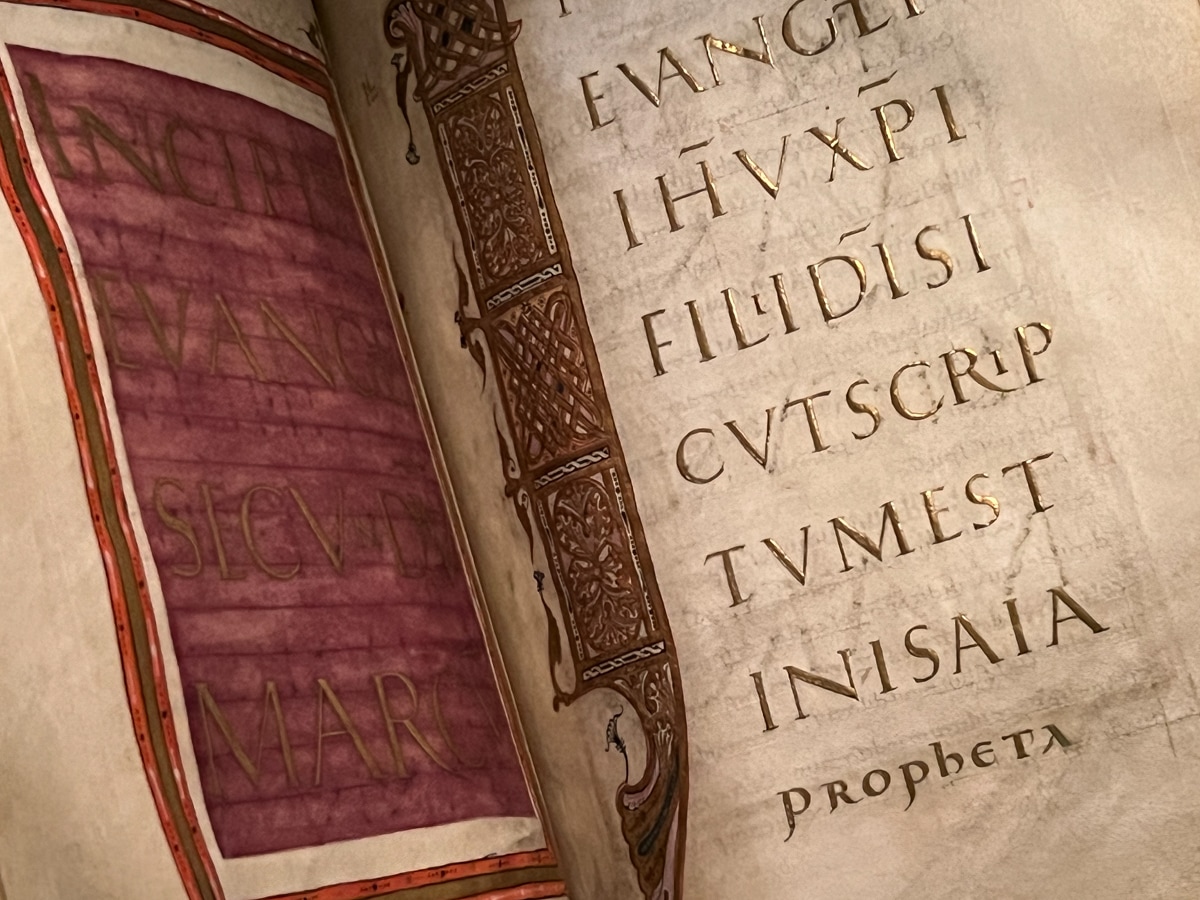 INCIP
EVANG
SECUND
MARC
EVANGELI
IH̅V XP̅I
FILII DI̅ SI
CVT SCRIP
TVM EST
IN ISAIA
propheta